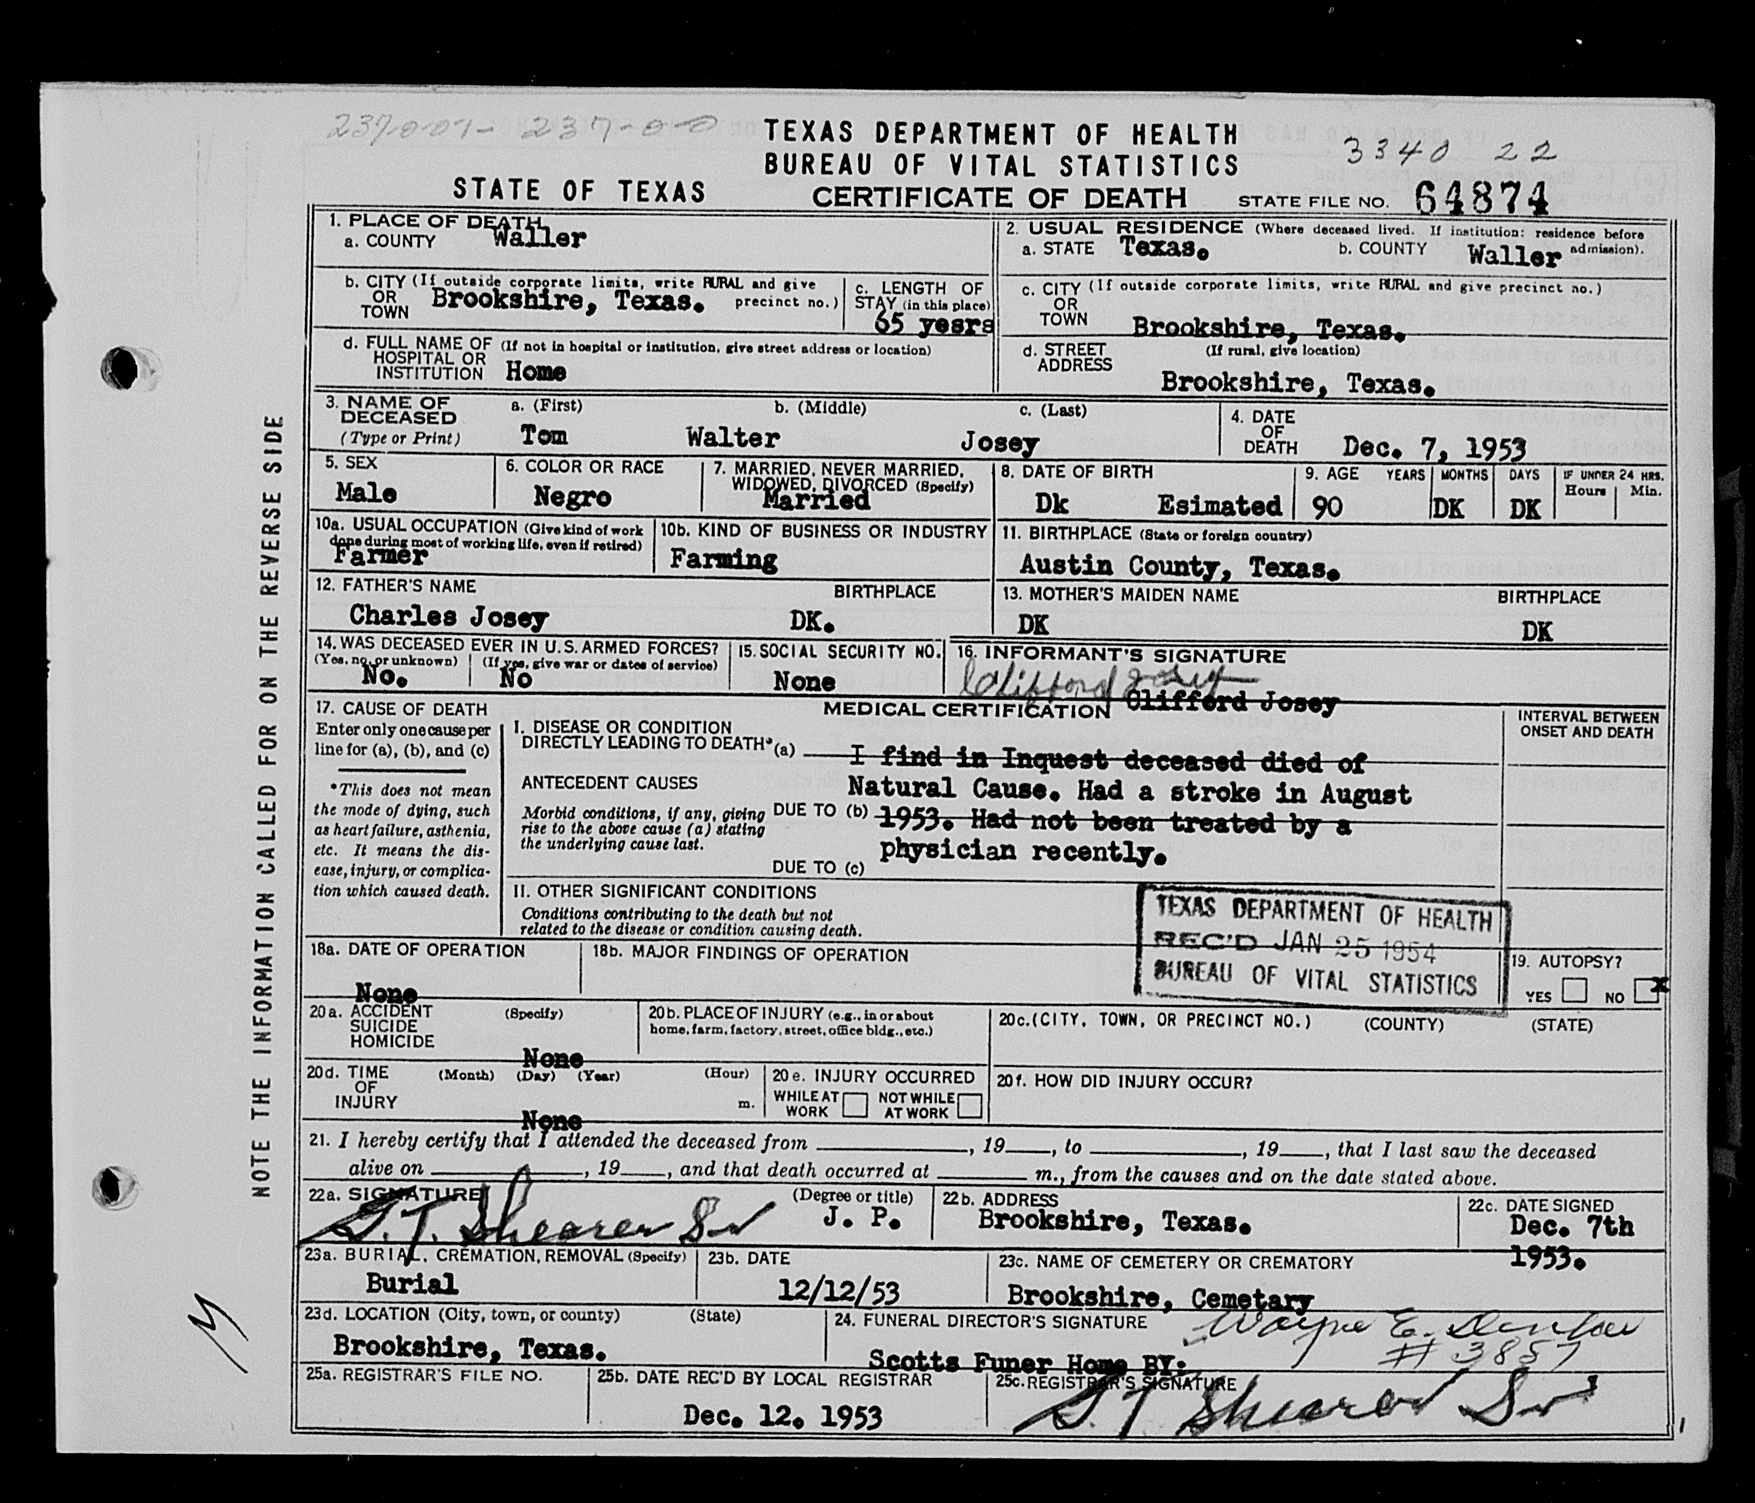 237-0-01- 237-0-0
TEXAS DEPARTMENT OF HEALTH
BUREAU OF VITAL STATISTICS
3340 22
STATE OF TEXAS
CERTIFICATE OF DEATH
STATE FILE NO. 64874
NOTE THE INFORMATION CALLED FOR ON THE REVERSE SIDE
1. PLACE OF DEATH
a. COUNTY Waller
2. USUAL RESIDENCE (Where deceased lived. If institution: residence before admission).
a. STATE Texas. b. COUNTY Waller
b. CITY (If outside corporate limits, write RURAL and give precinct no.)
OR
TOWN
Brookshire, Texas.
c. LENGTH OF
STAY (in this place)
65 years
c. CITY (If outside corporate limits, write RURAL and give precinct no.)
OR
TOWN
Brookshire, Texas.
d. FULL NAME OF (If not in hospital or institution, give street address or location)
HOSPITAL OR
INSTITUTION Home
d. STREET (If rural, give location)
ADDRESS
Brookshire, Texas.
3. NAME OF a. (First) b. (Middle) c. (Last)
DECEASED
(Type or Print) Tom Walter Josey
4. DATE
OF
DEATH Dec. 7, 1953
5. SEX
Male
6. COLOR OR RACE
Negro
7. MARRIED, NEVER MARRIED,
WIDOWED, DIVORCED (Specify)
Married
8. DATE OF BIRTH
Dk Esimated
9. AGE YEARS MONTHS DAYS IF UNDER 24 HRS.
Hours Min.
90 DK DK
10a. USUAL OCCUPATION (Give kind of work
done during most of working life, even if retired)
Farmer
10b. KIND OF BUSINESS OR INDUSTRY
Farming
11. BIRTHPLACE (State or foreign country)
Austin County, Texas.
12. FATHER'S NAME BIRTHPLACE
Charles Josey DK.
13. MOTHER'S MAIDEN NAME BIRTHPLACE
DK DK
14. WAS DECEASED EVER IN U.S. ARMED FORCES?
(Yes, no, or unknown) (If yes, give war or dates of service)
No. No
15. SOCIAL SECURITY NO.
None
16. INFORMANT'S SIGNATURE
Clifford Josey
Clifford Josey
17. CAUSE OF DEATH
Enter only one cause per
line for (a), (b), and (c)
*This does not mean
the mode of dying, such
as heart failure, asthenia,
etc. It means the dis-
ease, injury, or complica-
tion which caused death.
MEDICAL CERTIFICATION
INTERVAL BETWEEN
ONSET AND DEATH
I. DISEASE OR CONDITION
DIRECTLY LEADING TO DEATH*(a) I find in Inquest deceased died of
ANTECEDENT CAUSES
Natural Cause. Had a stroke in August
Morbid conditions, if any, giving
rise to the above cause (a) stating
the underlying cause last.
DUE TO (b) 1953. Had not been treated by a
physician recently.
DUE TO (c)
II. OTHER SIGNIFICANT CONDITIONS
Conditions contributing to the death but not
related to the disease or condition causing death.
TEXAS DEPARTMENT OF HEALTH
REC'D JAN 25 1954
BUREAU OF VITAL STATISTICS
18a. DATE OF OPERATION
None
18b. MAJOR FINDINGS OF OPERATION
19. AUTOPSY?
YES NO x
20a. ACCIDENT (Specify)
SUICIDE
HOMICIDE
None
20b. PLACE OF INJURY (e.g., in or about
home, farm, factory, street, office bldg., etc.)
20c. (CITY, TOWN, OR PRECINCT NO.) (COUNTY) (STATE)
20d. TIME (Month) (Day) (Year) (Hour)
OF
INJURY m.
None
20e. INJURY OCCURRED
WHILE AT
WORK
NOT WHILE
AT WORK
20f. HOW DID INJURY OCCUR?
21. I hereby certify that I attended the deceased from , 19 , to , 19 , that I last saw the deceased
alive on , 19 , and that death occurred at m., from the causes and on the date stated above.
22a. SIGNATURE (Degree or title)
S. T. Shearer Sr J. P.
22b. ADDRESS
Brookshire, Texas.
22c. DATE SIGNED
Dec. 7th
1953.
23a. BURIAL, CREMATION, REMOVAL (Specify)
Burial
23b. DATE
12/12/53
23c. NAME OF CEMETERY OR CREMATORY
Brookshire, Cemetary
23d. LOCATION (City, town, or county) (State)
Brookshire, Texas.
24. FUNERAL DIRECTOR'S SIGNATURE
Wayne E.
# 3857
Scotts Funer Home BY:
25a. REGISTRAR'S FILE NO.
25b. DATE REC'D BY LOCAL REGISTRAR
Dec. 12. 1953
25c. REGISTRAR'S SIGNATURE
S T Shearer Sr